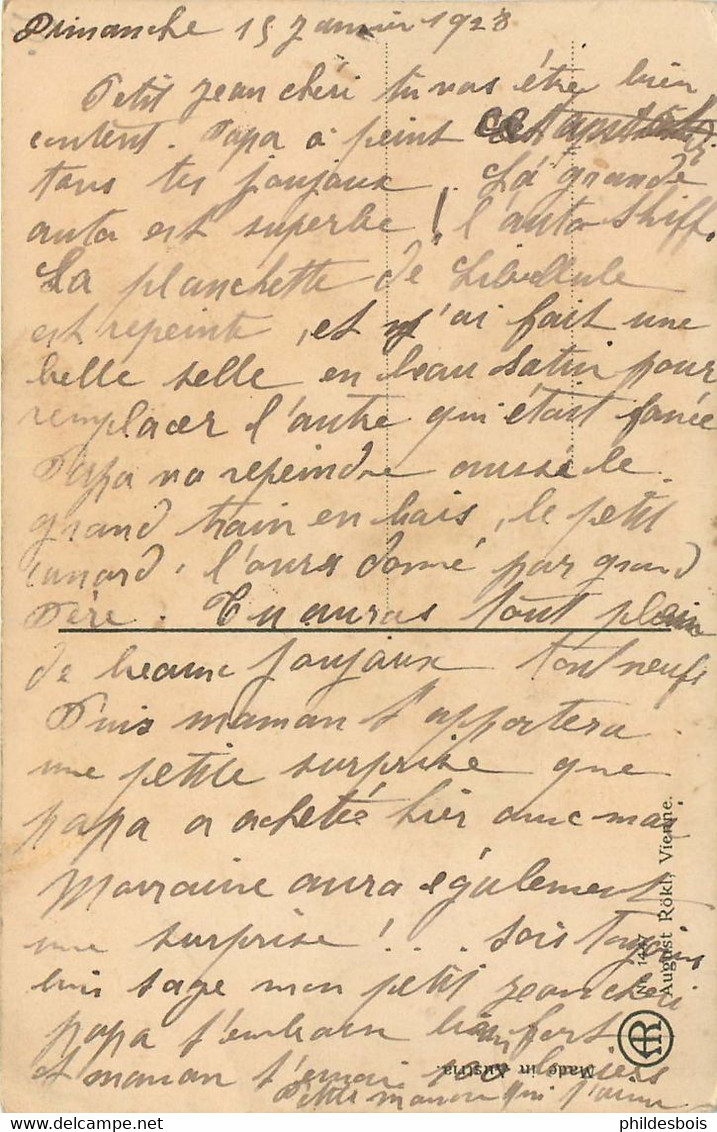 Dimanche 15 Janvier 1928
Petit Jean chéri tu vas être bien
content. Papa a peint
tous tes joujoux. La grande
auto est superbe ! l'auto Shiff.
La planchette de Libellule
est repeinte, et j'ai fait une
belle selle en beau satin pour
remplacer l'autre qui était fanée
Papa va repeindre aussi le
grand train en bois, le petit
canard, l'ours donné par grand
Père. Tu auras tout plein
de beaux joujoux tout neufs
Puis maman t'apportera
une petite surprise que
papa a acheté hier avec moi
Marraine aura également
une surprise !... Sois toujours
bien sage mon petit Jean chéri
papa t'embrasse bien fort
et maman t'envoie baisers
Petite maman qui t'aime
No. 1447
August Rökl, Vienne.
AR
Made in Austria.
phildesbois